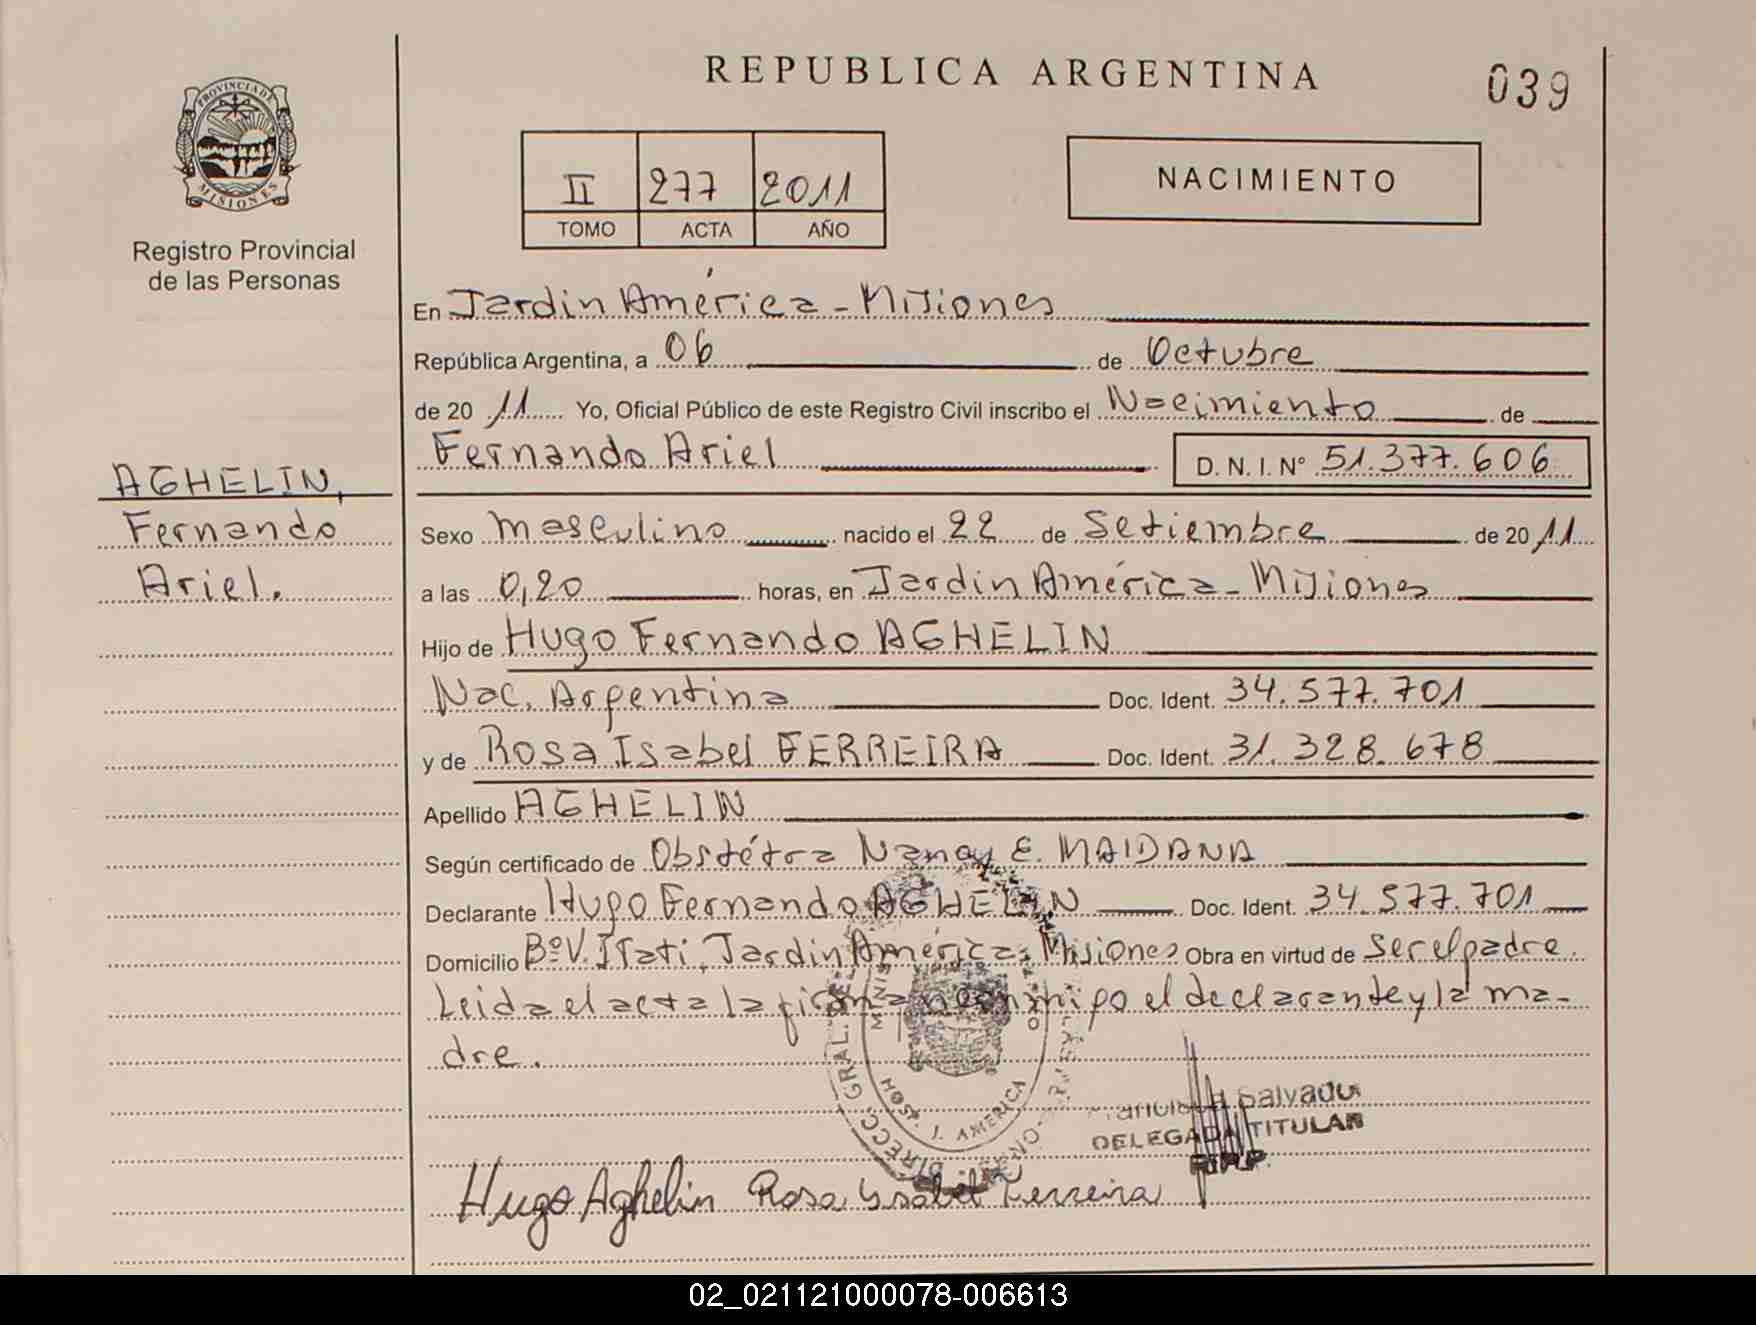 REPUBLICA ARGENTINA
039
PROVINCIA DE
MISIONES
Registro Provincial
de las Personas
II 277 2011
TOMO ACTA AÑO
NACIMIENTO
En Jardin América - Misiones
República Argentina, a 06 de Octubre
de 20 11 Yo, Oficial Público de este Registro Civil inscribo el Nacimiento de
Fernando Ariel D. N. I. N° 51.377.606
AGHELIN,
Fernando
Ariel.
Sexo masculino nacido el 22 de Setiembre de 20 11
a las 0,20 horas, en Jardin América - Misiones
Hijo de Hugo Fernando AGHELIN
Nac. Argentina Doc. Ident. 34.577.701
y de Rosa Isabel FERREIRA Doc. Ident. 31.328.678
Apellido AGHELIN
Según certificado de Obstétra Nancy E. MAIDANA
Declarante Hugo Fernando AGHELIN Doc. Ident. 34.577.701
Domicilio Bº V. Itati, Jardin América - Misiones Obra en virtud de ser el padre.
Leida el acta la firman conmigo el declarante y la ma-
dre.
DIRECC. GRAL. DEL
HOSP. J. AMERICA
Salvador
DELEGADA TITULAR
R.P.P.
Hugo Aghelin Rosa Ysabel Ferreira
02_021121000078-006613